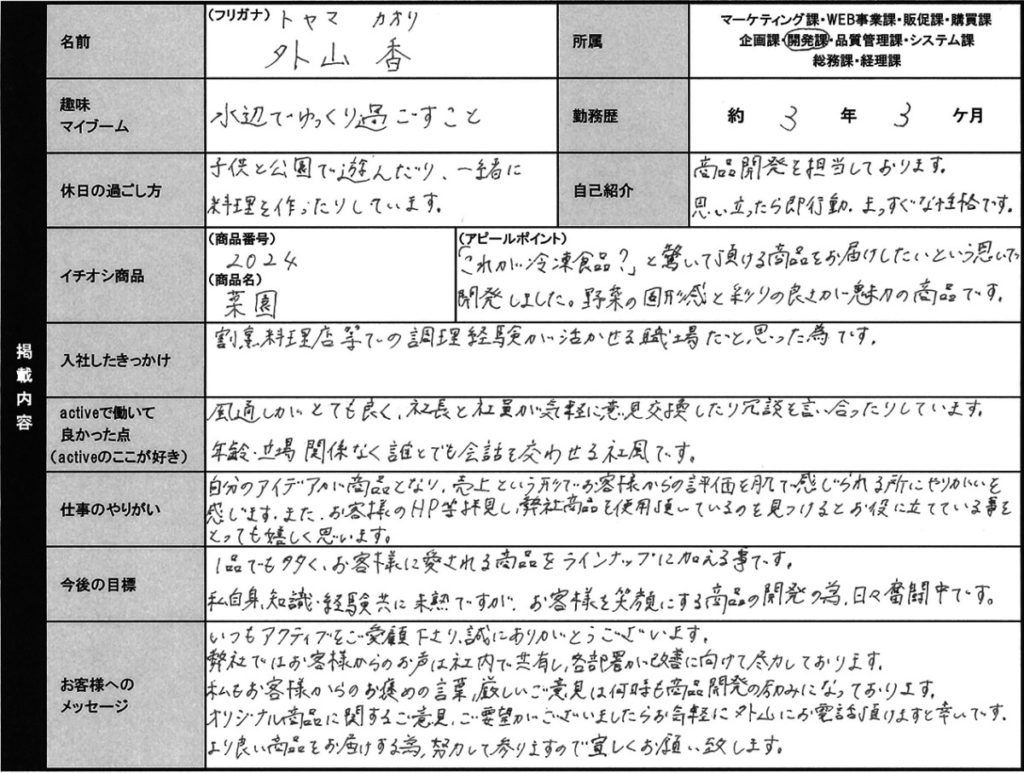 掲載内容
名前
(フリガナ) トヤマ カオリ
外山 香
所属
マーケティング課・WEB事業課・販促課・購買課
企画課・開発課・品質管理課・システム課
総務課・経理課
趣味
マイブーム
水辺でゆっくり過ごすこと
勤務歴
約 3 年 3 ケ月
休日の過ごし方
子供と公園で遊んだり、一緒に
料理を作ったりしています。
自己紹介
商品開発を担当しております。
思い立ったら即行動、まっすぐな性格です。
イチオシ商品
(商品番号)
2024
(商品名)
菜園
(アピールポイント)
「これが冷凍食品?」と驚いて頂ける商品をお届けしたいという思いで
開発しました。野菜の固形感と彩りの良さが魅力の商品です。
入社したきっかけ
割烹料理店等での調理経験が活かせる職場だと思った為です。
activeで働いて
良かった点
(activeのここが好き)
風通しがとても良く、社長と社員が気軽に意見交換したり冗談を言い合ったりしています。
年齢・立場関係なく誰とでも会話を交わせる社風です。
仕事のやりがい
自分のアイデアが商品となり、売上という形でお客様からの評価を肌で感じられる所にやりがいを
感じます。また、お客様のHP等拝見し、弊社商品を使用頂いているのを見つけるとお役に立てている事を
とっても嬉しく思います。
今後の目標
1品でも多く、お客様に愛される商品をラインナップに加える事です。
私自身、知識・経験共に未熟ですが、お客様を笑顔にする商品の開発の為、日々奮闘中です。
お客様への
メッセージ
いつもアクティブをご愛顧下さり、誠にありがとうございます。
弊社ではお客様からのお声は社内で共有し、各部署が改善に向けて尽力しております。
私もお客様からのお褒めの言葉、厳しいご意見は何時も商品開発の励みになっております。
オリジナル商品に関するご意見、ご要望がございましたらお気軽に外山にお電話頂けますと幸いです。
より良い商品をお届けする為、努力して参りますので宜しくお願い致します。